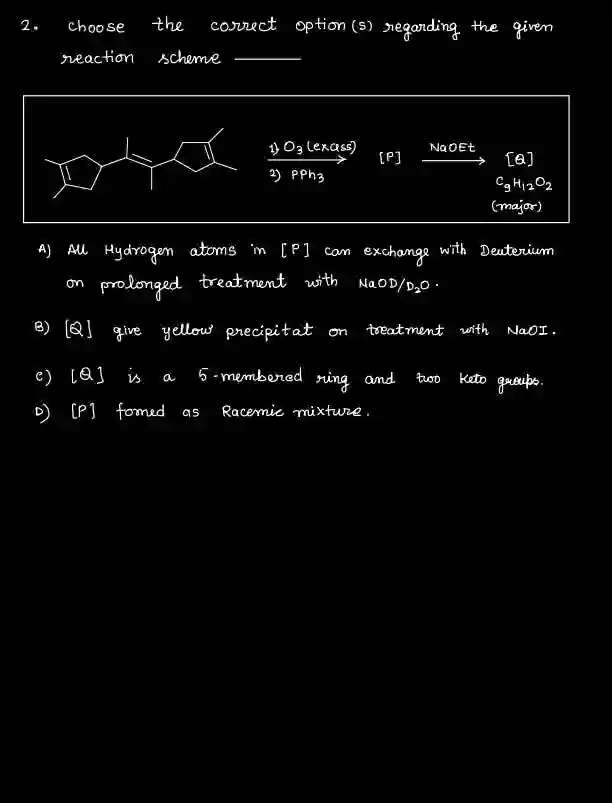 2. choose the correct option (s) regarding the given
reaction scheme ———
1) O3 (excess)
2) PPh3
[P]
NaOEt
[Q]
C9H12O2
(major)
A) All Hydrogen atoms in [P] can exchange with Deuterium
on prolonged treatment with NaOD/D2O.
B) [Q] give yellow precipitat on treatment with NaOI.
c) [Q] is a 5-membered ring and two keto groups.
D) [P] fomed as Racemic mixture.